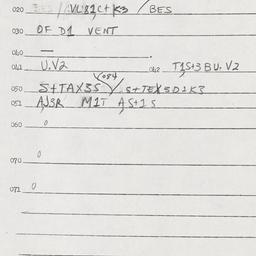 020 BES / VL81,C+K3 / BES
030 OF D1 VENT
040 —
041 U.V2 042 T1S+3 BU. V2
084
050 S+TAX3S / S+TEX3D1K3
051 AJ3R M1T A,S+1 S
060 0
070 0
071 0